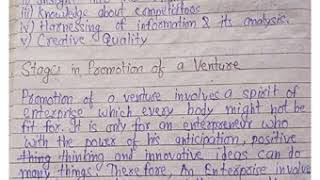 iii) Knowledge about competitors
iv) Harnessing of information & its analysis.
v) Creative Quality
Stages in Promotion of a Venture
Promotion of a venture involves a spirit of
enterprise which every body might not be
fit for. It is only for an enterpreneur who
with the power of his anticipation, positive
thing thinking and innovative ideas can do
many things. Therefore, An Enterprise involve